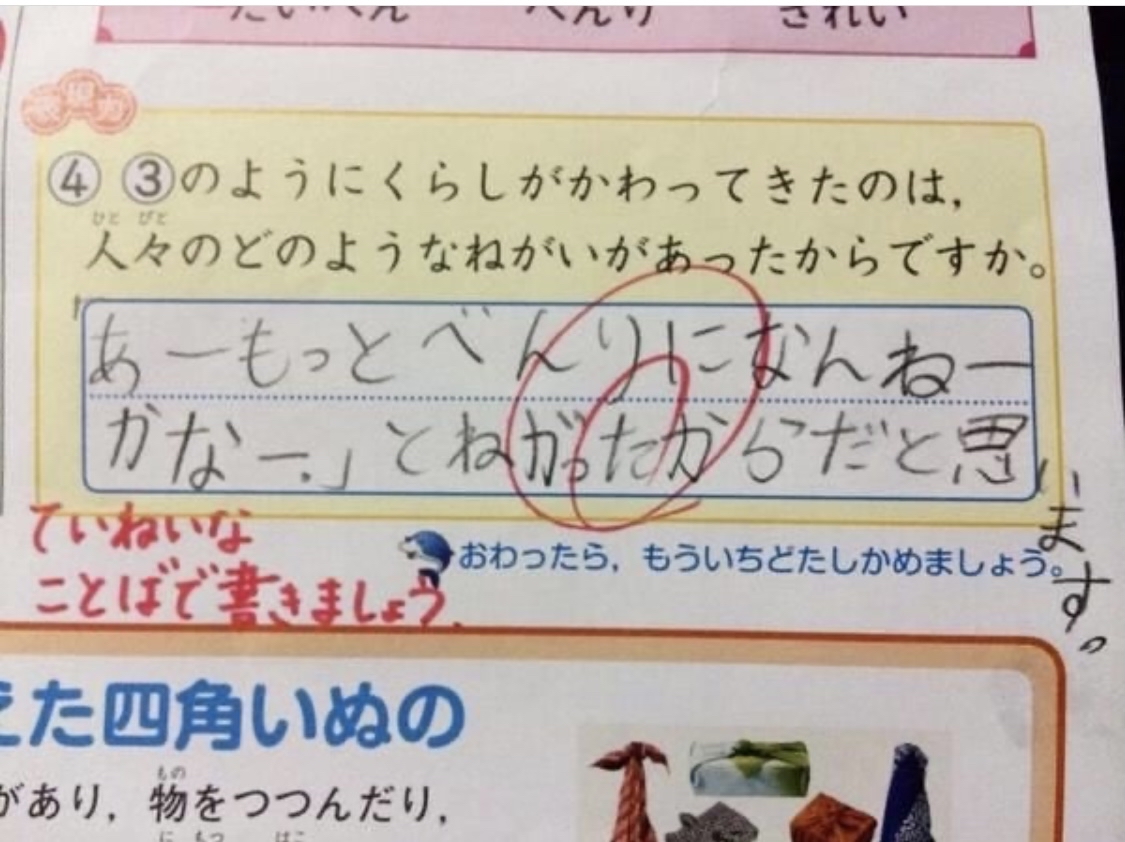 たいへん べんり きれい
表現力
④ ③のようにくらしがかわってきたのは,
ひと びと
人々のどのようなねがいがあったからですか。
「あーもっとべんりになんねー
かなー。」とねがったからだと思います。
ていねいな
ことばで書きましょう。
おわったら,もういちどたしかめましょう。
えた四角いぬの
もの
があり,物をつつんだり,
に もつ はこ